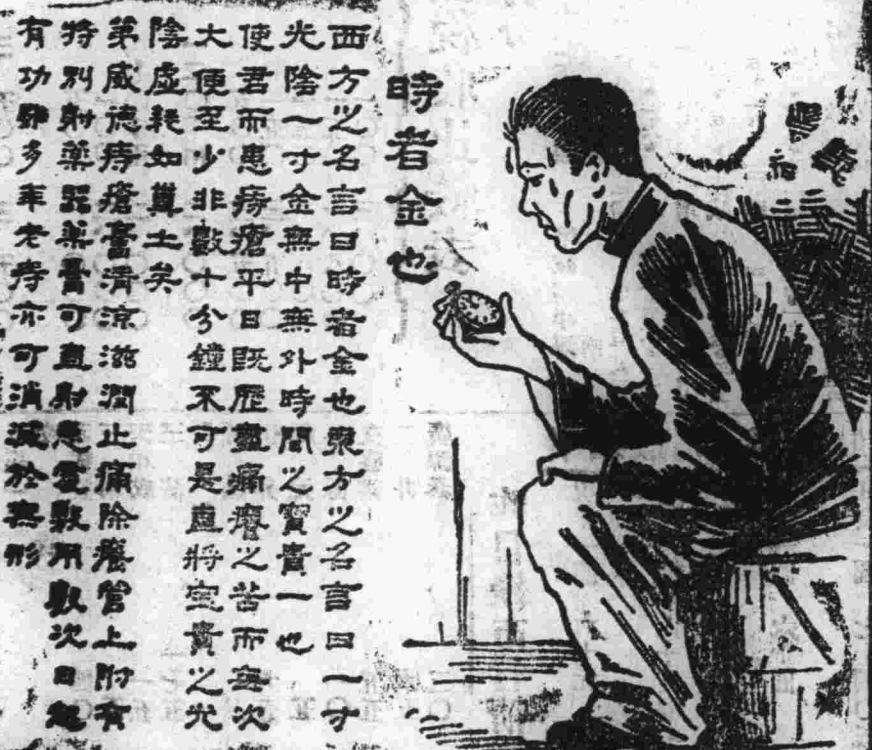 時者金也
西方之名言曰時者金也東方之名言曰一寸
光陰一寸金無中無外時間之寶貴一也
使君而患痔瘡平日既歷盡痛癢之苦而每次
大便至少非數十分鐘不可是直將宝貴之光
陰虛耗如糞土矣
第威德痔瘡膏清涼滋潤止痛除癢管上附有
特別射藥器藥膏可直射患處敷用數次日起
有功雖多年老痔亦可消滅於無形